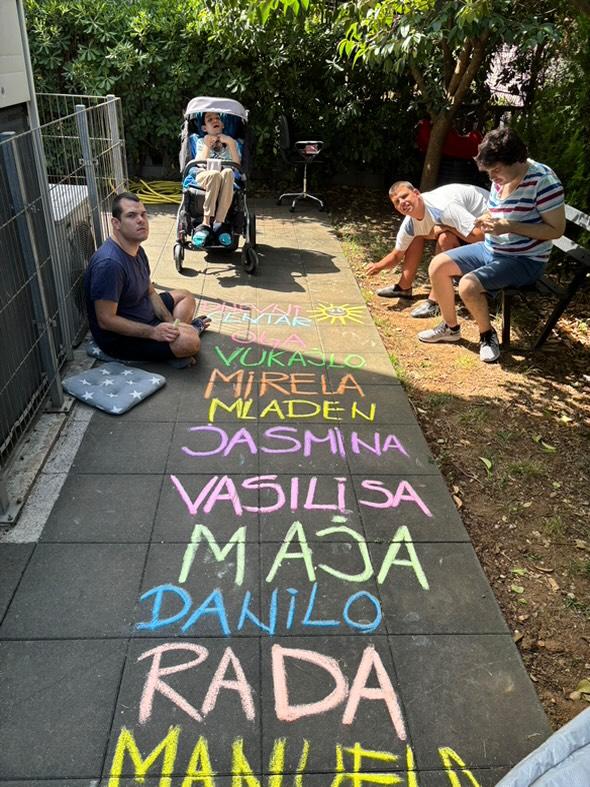 DNEVNI
CENTAR
OGA
VUKAJLO
MIRELA
MLADEN
JASMINA
VASILISA
MAJA
DANILO
RADA
MANUELA